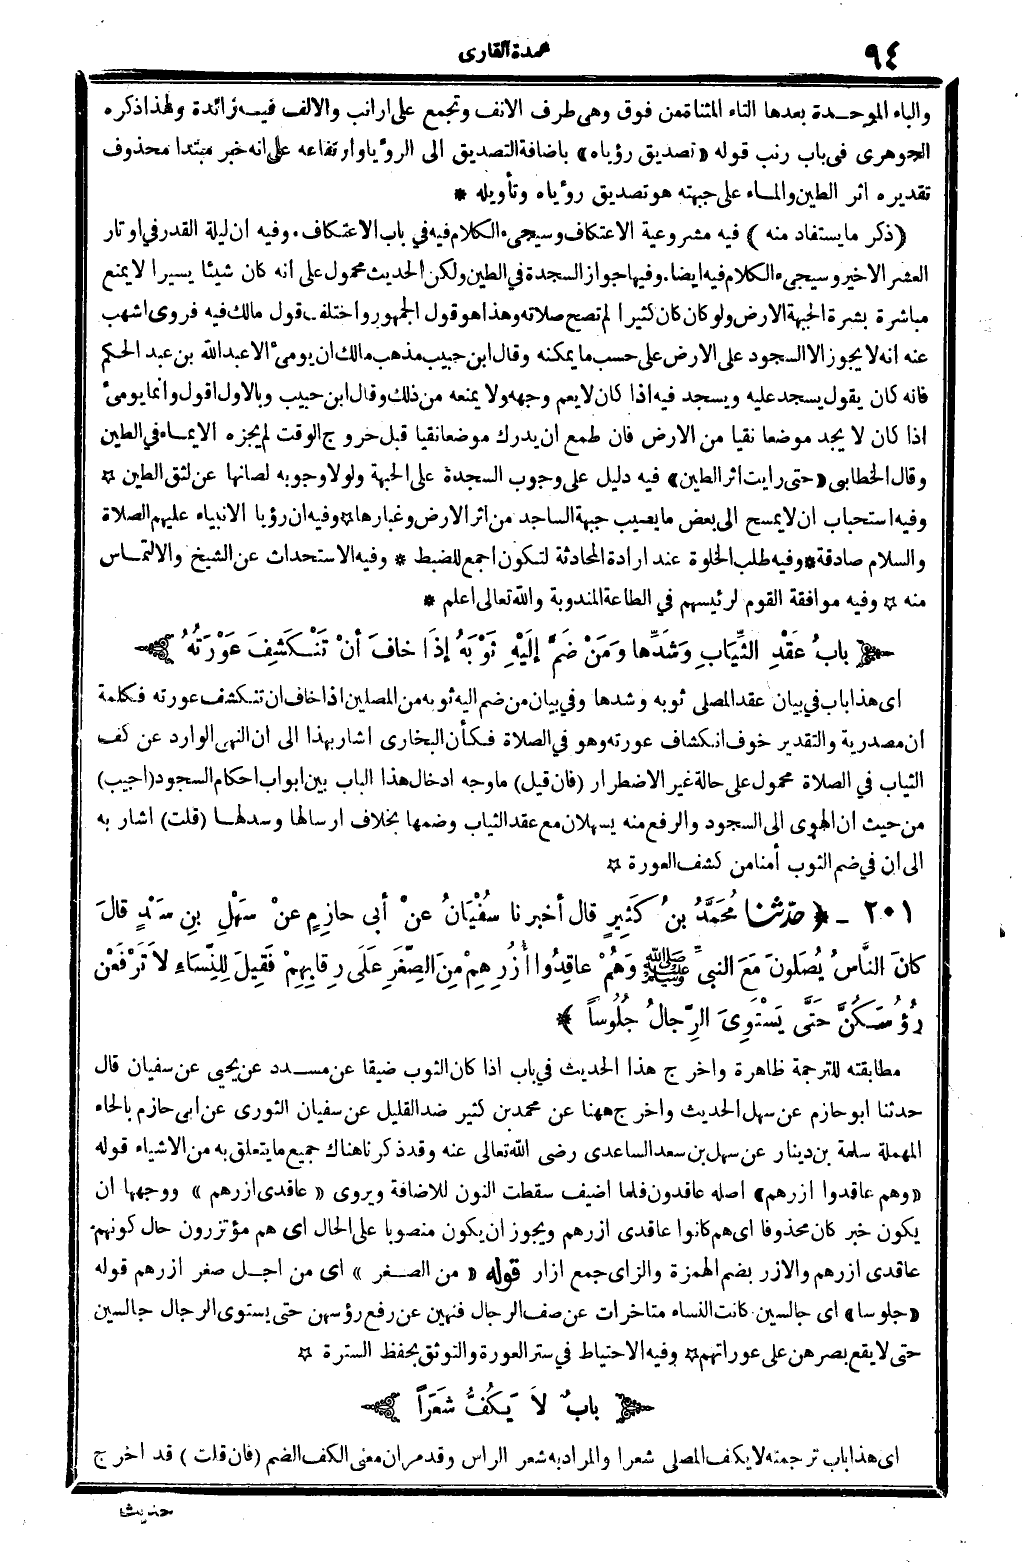 ٩٤
عمدة القارى
والباء الموحدة بعدها التاء المثناة من فوق وهى طرف الانف وتجمع على ارانب والالف فيه زائدة ولهذا ذكره
الجوهرى فى باب رنب قوله «تصديق رؤياه» باضافة التصديق الى الرؤيا وارتفاعه على انه خبر مبتدا محذوف
تقديره اثر الطين والماء على جبهته هو تصديق رؤياه وتأويله *
(ذكر ما يستفاد منه) فيه مشروعية الاعتكاف وسيجىء الكلام فيه في باب الاعتكاف. وفيه ان ليلة القدر في اوتار
العشر الاخير وسيجىء الكلام فيه ايضا. وفيها جواز السجدة في الطين ولكن الحديث محمول على انه كان شيئا يسيرا لا يمنع
مباشرة بشرة الجبهة الارض ولو كان كان كثيرا لم تصح صلاته وهذا هو قول الجمهور واختلف قول مالك فيه فروى اشهب
عنه انه لا يجوز الا السجود على الارض على حسب ما يمكنه وقال ابن حبيب مذهب مالك ان يومىء الا عبد الله بن عبد الحكم
فانه كان يقول يسجد عليه ويسجد فيه اذا كان لا يعم وجهه ولا يمنعه من ذلك وقال ابن حبيب وبالاول اقول وانما يومىء
اذا كان لا يجد موضعا نقيا من الارض فان طمع ان يدرك موضعا نقيا قبل خروج الوقت لم يجزه الايماء في الطين
وقال الخطابى «حتى رايت اثر الطين» فيه دليل على وجوب السجدة على الجبهة ولولا وجوبه لصانها عن لثق الطين ☆
وفيه استحباب ان لا يمسح الى بعض ما يصيب جبهة الساجد من اثر الارض وغبارها ☆ وفيه ان رؤيا الانبياء عليهم الصلاة
والسلام صادقة * وفيه طلب الخلوة عند ارادة المحادثة لتكون اجمع للضبط * وفيه الاستحداث عن الشيخ والالتماس
منه ☆ وفيه موافقة القوم لرئيسهم في الطاعة المندوبة والله تعالى اعلم *
﴿ بابُ عَقْدِ الثِّيَابِ وَشَدِّها وَمَنْ ضَمَّ إلَيْهِ ثَوْبَهُ إذَا خافَ أنْ تَنْكَشِفَ عَوْرَتُهُ ﴾
اى هذا باب في بيان عقد المصلى ثوبه وشدها وفي بيان من ضم اليه ثوبه من المصلين اذا خاف ان تنكشف عورته فكلمة
ان مصدرية والتقدير خوف انكشاف عورته وهو في الصلاة فكأن البخارى اشار بهذا الى ان النهى الوارد عن كف
الثياب في الصلاة محمول على حالة غير الاضطرار (فان قيل) ما وجه ادخال هذا الباب بين ابواب احكام السجود (اجيب)
من حيث ان الهوى الى السجود والرفع منه يسهلان مع عقد الثياب وضمها بخلاف ارسالها وسدلها (قلت) اشار به
الى ان في ضم الثوب أمنا من كشف العورة ☆
٢٠١ - ﴿ حدّثنا مُحَمَّدُ بنُ كَثِيرٍ قال أخبرنا سُفْيَانُ عنْ أبى حازِمٍ عنْ سَهْلِ بنِ سَعْدٍ قالَ
كانَ النَّاسُ يُصَلُّونَ مَعَ النبىِّ ﷺ وَهُمْ عاقِدُوا أُزُرِهِمْ مِنَ الصِّغَرِ عَلَى رِقابِهِمْ فَقِيلَ لِلنِّسَاءِ لاَ تَرْفَعْنَ
رُؤُسَكُنَّ حَتَّى يَسْتَوِىَ الرِّجالُ جُلُوساً ﴾ *
مطابقته للترجمة ظاهرة واخرج هذا الحديث في باب اذا كان الثوب ضيقا عن مسدد عن يحيى عن سفيان قال
حدثنا ابو حازم عن سهل الحديث واخرج ههنا عن محمد بن كثير ضد القليل عن سفيان الثورى عن ابى حازم بالحاء
المهملة سلمة بن دينار عن سهل بن سعد الساعدى رضى الله تعالى عنه وقد ذكرنا هناك جميع ما يتعلق به من الاشياء قوله
«وهم عاقدوا ازرهم» اصله عاقدون فلما اضيف سقطت النون للاضافة ويروى «عاقدى ازرهم» ووجهها ان
يكون خبر كان محذوفا اى هم كانوا عاقدى ازرهم ويجوز ان يكون منصوبا على الحال اى هم مؤتزرون حال كونهم
عاقدى ازرهم والازر بضم الهمزة والزاى جمع ازار قوله «من الصغر» اى من اجل صغر ازرهم قوله
«جلوسا» اى جالسين كانت النساء متاخرات عن صف الرجال فنهين عن رفع رؤسهن حتى يستوى الرجال جالسين
حتى لا يقع بصرهن على عوراتهم ☆ وفيه الاحتياط في ستر العورة والتوثق بحفظ السترة ☆
﴿ بابٌ لاَ يَكُفُّ شَعَرًا ﴾
اى هذا باب ترجمته لا يكف المصلى شعرا والمراد به شعر الراس وقد مر ان معنى الكف الضم (فان قلت) قد اخرج
حديث